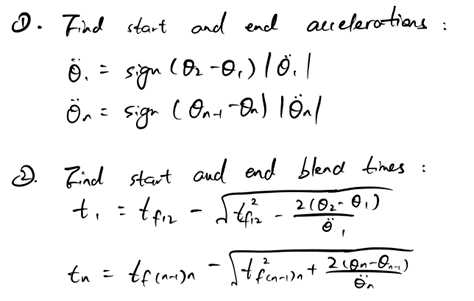 ①. Find start and end accelerations :
θ̈₁ = sign (θ₂ - θ₁) |θ̈₁|
θ̈ₙ = sign (θₙ₋₁ - θₙ) |θ̈ₙ|
②. Find start and end blend times :
t₁ = t_f₁₂ - √(t²_f₁₂ - 2(θ₂ - θ₁)/θ̈₁)
tₙ = t_f(n-1)n - √(t²_f(n-1)n + 2(θₙ - θₙ₋₁)/θ̈ₙ)